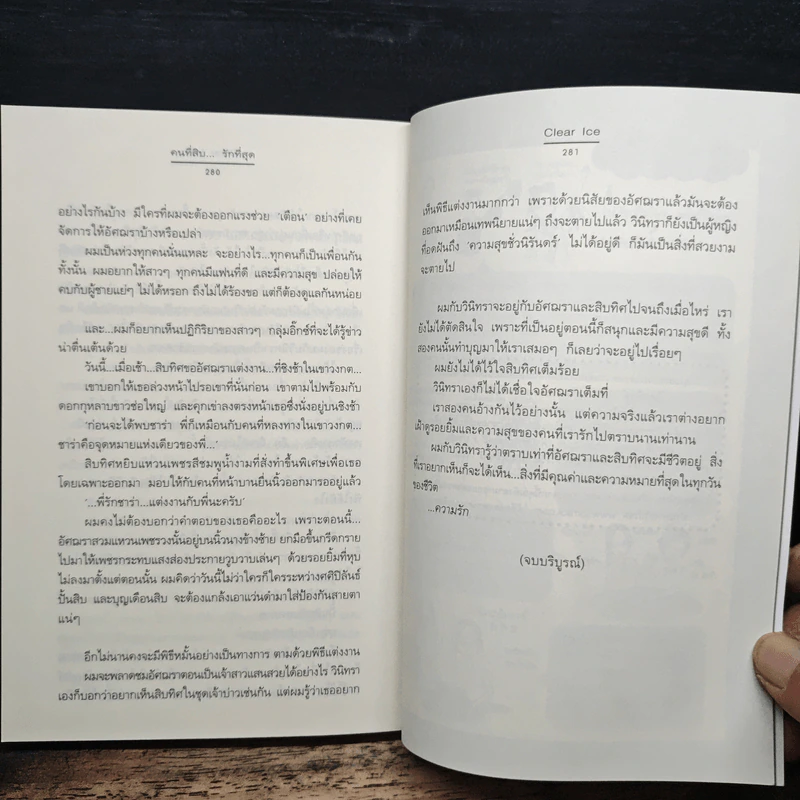 คนที่สิบ... รักที่สุด
280
อย่างไรกันบ้าง มีใครที่ผมจะต้องออกแรงช่วย ‘เตือน’ อย่างที่เคย
จัดการให้อัศฌราบ้างหรือเปล่า
ผมเป็นห่วงทุกคนนั่นแหละ จะอย่างไร...ทุกคนก็เป็นเพื่อนกัน
ทั้งนั้น ผมอยากให้สาวๆ ทุกคนมีแฟนที่ดี และมีความสุข ปล่อยให้
คบกับผู้ชายแย่ๆ ไม่ได้หรอก ถึงไม่ได้ร้องขอ แต่ก็ต้องดูแลกันหน่อย
และ...ผมก็อยากเห็นปฏิกิริยาของสาวๆ กลุ่มอิ๊กซ์ที่จะได้รู้ข่าว
น่าตื่นเต้นด้วย
วันนี้...เมื่อเช้า...สิบทิศขออัศฌราแต่งงาน...ที่ชิงช้าในเขาวงกต...
เขาบอกให้เธอล่วงหน้าไปรอเขาที่นั่นก่อน เขาตามไปพร้อมกับ
ดอกกุหลาบขาวช่อใหญ่ และคุกเข่าลงตรงหน้าเธอซึ่งนั่งอยู่บนชิงช้า
‘ก่อนจะได้พบซาร่า พี่ก็เหมือนกับคนที่หลงทางในเขาวงกต...
ซาร่าคือจุดหมายแห่งเดียวของพี่...’
สิบทิศหยิบแหวนเพชรสีชมพูน้ำงามที่สั่งทำขึ้นพิเศษเพื่อเธอ
โดยเฉพาะออกมา มอบให้กับคนที่หน้าบานยื่นนิ้วมารออยู่แล้ว
‘...พี่รักซาร่า...แต่งงานกับพี่นะครับ’
ผมคงไม่ต้องบอกว่าคำตอบของเธอคืออะไร เพราะตอนนี้...
อัศฌราสวมแหวนเพชรวงนั้นอยู่บนนิ้วนางข้างซ้าย ยกมือขึ้นกรีดกราย
ไปมาให้เพชรกระทบแสงส่องประกายวูบวาบเล่นๆ ด้วยรอยยิ้มที่หุบ
ไม่ลงมาตั้งแต่ตอนนั้น ผมคิดว่าวันนี้ไม่ว่าใครก็ใครระหว่างศศิปิลันธ์
ปั้นสิบ และบุญเตือนสิบ จะต้องแกล้งเอาแว่นดำมาใส่ป้องกันสายตา
แน่ๆ
อีกไม่นานคงจะมีพิธีหมั้นอย่างเป็นทางการ ตามด้วยพิธีแต่งงาน
ผมจะพลาดชมอัศฌราตอนเป็นเจ้าสาวแสนสวยได้อย่างไร วินิทรา
เองก็บอกว่าอยากเห็นสิบทิศในชุดเจ้าบ่าวเช่นกัน แต่ผมรู้ว่าเธออยาก
Clear Ice
281
เห็นพิธีแต่งงานมากกว่า เพราะด้วยนิสัยของอัศฌราแล้วมันจะต้อง
ออกมาเหมือนเทพนิยายแน่ๆ ถึงจะตายไปแล้ว วินิทราก็ยังเป็นผู้หญิง
ที่อดฝันถึง ‘ความสุขชั่วนิรันดร์’ ไม่ได้อยู่ดี ก็มันเป็นสิ่งที่สวยงาม
จะตายไป
ผมกับวินิทราจะอยู่กับอัศฌราและสิบทิศไปจนถึงเมื่อไหร่ เรา
ยังไม่ได้ตัดสินใจ เพราะที่เป็นอยู่ตอนนี้ก็สนุกและมีความสุขดี ทั้ง
สองคนนั้นทำบุญมาให้เราเสมอๆ ก็เลยว่าจะอยู่ไปเรื่อยๆ
ผมยังไม่ได้ไว้ใจสิบทิศเต็มร้อย
วินิทราเองก็ไม่ได้เชื่อใจอัศฌราเต็มที่
เราสองคนอ้างกันไว้อย่างนั้น แต่ความจริงแล้วเราต่างอยาก
เฝ้าดูรอยยิ้มและความสุขของคนที่เรารักไปตราบนานเท่านาน
ผมกับวินิทรารู้ว่าตราบเท่าที่อัศฌราและสิบทิศจะมีชีวิตอยู่ สิ่ง
ที่เราอยากเห็นก็จะได้เห็น...สิ่งที่มีคุณค่าและความหมายที่สุดในทุกวัน
ของชีวิต
...ความรัก
(จบบริบูรณ์)